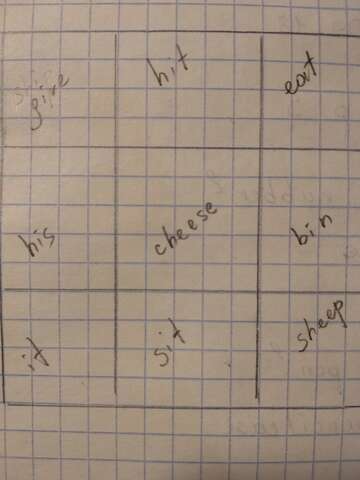 give hit eat
his cheese bin
it sit sheep